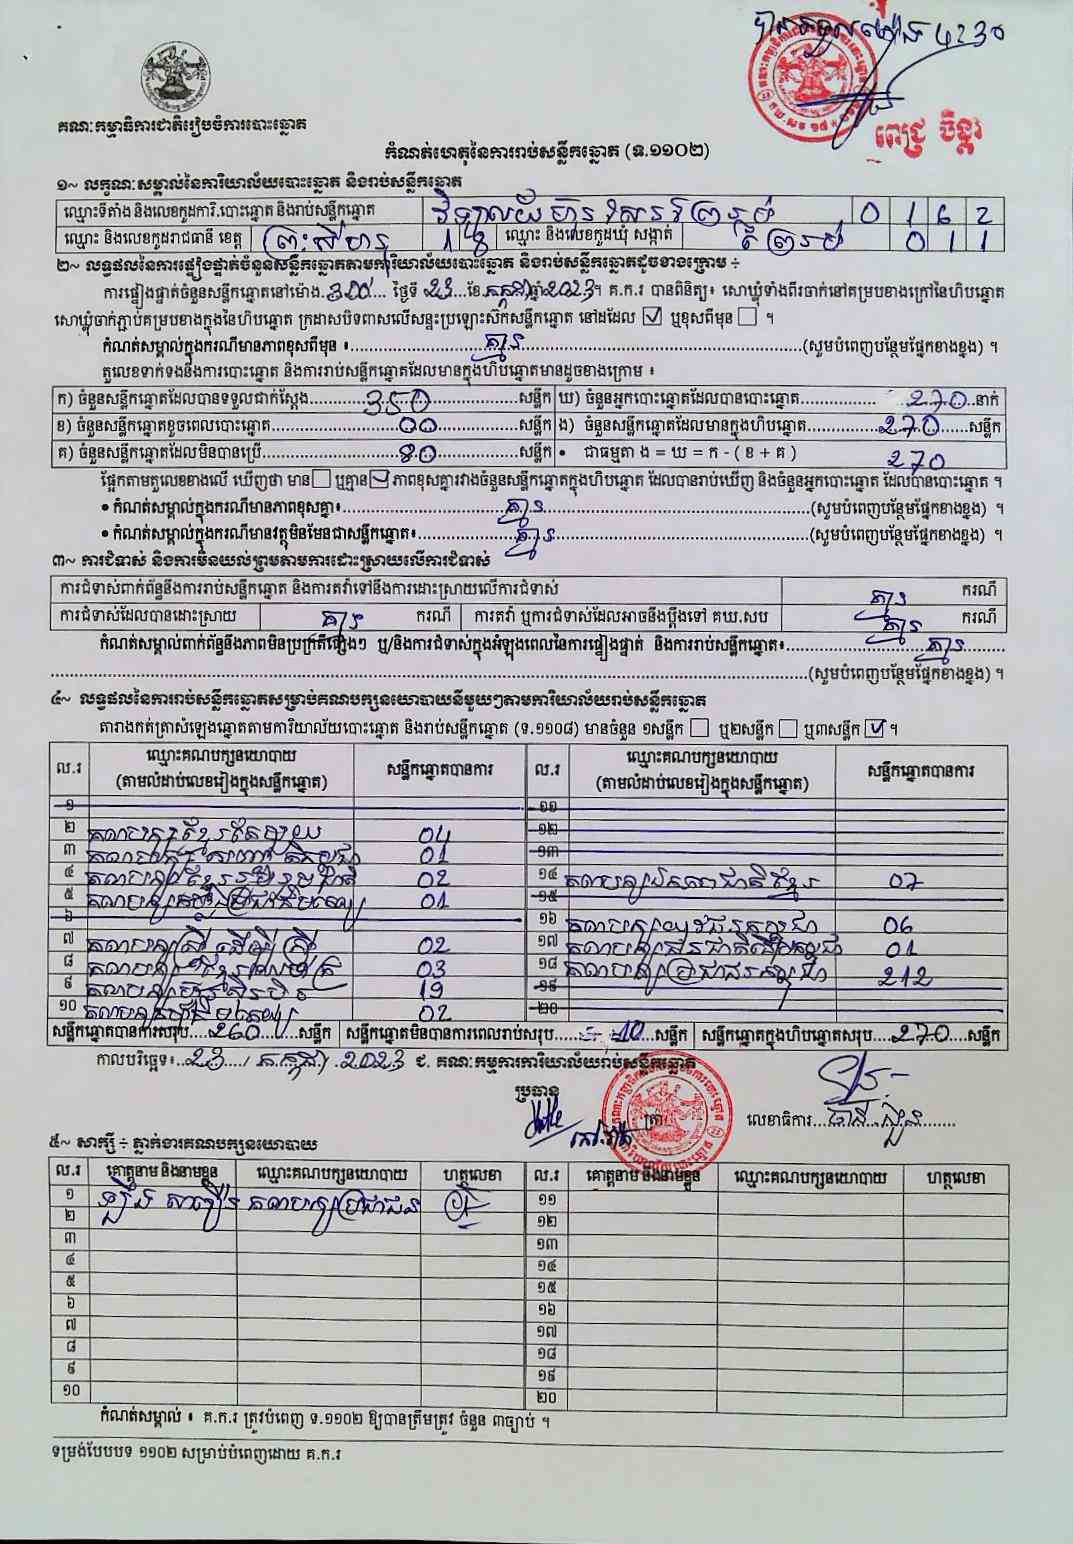 បានទទួលម៉ោង ៤:៣០
ពេជ្រ ចិន្តា
គណៈកម្មាធិការជាតិរៀបចំការបោះឆ្នោត
កំណត់ហេតុនៃការរាប់សន្លឹកឆ្នោត (ទ.១១០២)
១~ លក្ខណៈសម្គាល់នៃការិយាល័យបោះឆ្នោត និងរាប់សន្លឹកឆ្នោត
ឈ្មោះទីតាំង និងលេខកូដការិ.បោះឆ្នោត និងរាប់សន្លឹកឆ្នោត វិទ្យាល័យ ហ៊ុន សែន 0 1 6 2
ឈ្មោះ និងលេខកូដរាជធានី ខេត្ត ព្រះសីហនុ 1 8 ឈ្មោះ និងលេខកូដឃុំ សង្កាត់ 0 1 1
២~ លទ្ធផលនៃការផ្ទៀងផ្ទាត់ចំនួនសន្លឹកឆ្នោតតាមការិយាល័យបោះឆ្នោត និងរាប់សន្លឹកឆ្នោតដូចខាងក្រោម ÷
ការផ្ទៀងផ្ទាត់ចំនួនសន្លឹកឆ្នោតនៅម៉ោង.300... ថ្ងៃទី 23...ខែ.កក្កដា.ឆ្នាំ.2023។ គ.ក.រ បានពិនិត្យ៖ សោឃ្លុំទាំងពីរចាក់នៅគម្របខាងក្រៅនៃហិបឆ្នោត
សោឃ្លុំចាក់ភ្ជាប់គម្របខាងក្នុងនៃហិបឆ្នោត ក្រដាសបិទពាសលើសន្ទះប្រឡោះស៊កសន្លឹកឆ្នោត នៅដដែល ☑ ឬខុសពីមុន ☐ ។
កំណត់សម្គាល់ក្នុងករណីមានភាពខុសពីមុន ៖........គ្មាន........(សូមបំពេញបន្ថែមផ្នែកខាងខ្នង) ។
តួលេខទាក់ទងនឹងការបោះឆ្នោត និងការរាប់សន្លឹកឆ្នោតដែលមានក្នុងហិបឆ្នោតមានដូចខាងក្រោម ៖
ក) ចំនួនសន្លឹកឆ្នោតដែលបានទទួលជាក់ស្តែង........350........សន្លឹក ឃ) ចំនួនអ្នកបោះឆ្នោតដែលបានបោះឆ្នោត........270..នាក់
ខ) ចំនួនសន្លឹកឆ្នោតខូចពេលបោះឆ្នោត........00........សន្លឹក ង) ចំនួនសន្លឹកឆ្នោតដែលមានក្នុងហិបឆ្នោត........270......សន្លឹក
គ) ចំនួនសន្លឹកឆ្នោតដែលមិនបានប្រើ........80........សន្លឹក • ជាធម្មតា ង = ឃ = ក - ( ខ + គ ) 270
ផ្អែកតាមតួលេខខាងលើ ឃើញថា មាន☐ ឬគ្មាន☑ ភាពខុសគ្នារវាងចំនួនសន្លឹកឆ្នោតក្នុងហិបឆ្នោត ដែលបានរាប់ឃើញ និងចំនួនអ្នកបោះឆ្នោត ដែលបានបោះឆ្នោត ។
• កំណត់សម្គាល់ក្នុងករណីមានភាពខុសគ្នា៖........គ្មាន........(សូមបំពេញបន្ថែមផ្នែកខាងខ្នង) ។
• កំណត់សម្គាល់ក្នុងករណីមានវត្ថុមិនមែនជាសន្លឹកឆ្នោត៖........គ្មាន........(សូមបំពេញបន្ថែមផ្នែកខាងខ្នង) ។
៣~ ការជំទាស់ និងការមិនយល់ព្រមតាមការដោះស្រាយលើការជំទាស់
ការជំទាស់ពាក់ព័ន្ធនឹងការរាប់សន្លឹកឆ្នោត និងការតវ៉ាទៅនឹងការដោះស្រាយលើការជំទាស់ គ្មាន ករណី
ការជំទាស់ដែលបានដោះស្រាយ គ្មាន ករណី ការតវ៉ា ឬការជំទាស់ដែលអាចនឹងប្តឹងទៅ គឃ.សប គ្មាន ករណី
កំណត់សម្គាល់ពាក់ព័ន្ធនឹងភាពមិនប្រក្រតីផ្សេងៗ ឬ/និងការជំទាស់ក្នុងអំឡុងពេលនៃការផ្ទៀងផ្ទាត់ និងការរាប់សន្លឹកឆ្នោត៖........គ្មាន........
........(សូមបំពេញបន្ថែមផ្នែកខាងខ្នង) ។
៤~ លទ្ធផលនៃការរាប់សន្លឹកឆ្នោតសម្រាប់គណបក្សនយោបាយនីមួយៗតាមការិយាល័យរាប់សន្លឹកឆ្នោត
តារាងកត់ត្រាសំឡេងឆ្នោតតាមការិយាល័យបោះឆ្នោត និងរាប់សន្លឹកឆ្នោត (ទ.១១០៨) មានចំនួន ១សន្លឹក ☐ ឬ២សន្លឹក ☐ ឬ៣សន្លឹក ☑ ។
ល.រ ឈ្មោះគណបក្សនយោបាយ (តាមលំដាប់លេខរៀងក្នុងសន្លឹកឆ្នោត) សន្លឹកឆ្នោតបានការ ល.រ ឈ្មោះគណបក្សនយោបាយ (តាមលំដាប់លេខរៀងក្នុងសន្លឹកឆ្នោត) សន្លឹកឆ្នោតបានការ
១ ១១
២ គណបក្សខ្មែរតែមួយ 04 ១២
៣ គណបក្ស 01 ១៣
៤ គណបក្សខ្មែររួបរួមជាតិ 02 ១៤ គណបក្សឯកភាពជាតិខ្មែរ 07
៥ គណបក្ស 01 ១៥
៦ ១៦ គណបក្សយុវជនកម្ពុជា 06
៧ គណបក្សស្ត្រីដើម្បីស្ត្រី 02 ១៧ គណបក្ស 01
៨ គណបក្ស 03 ១៨ គណបក្សប្រជាជនកម្ពុជា 212
៩ គណបក្សហ៊្វុនស៊ិនប៉ិច 19 ១៩
១០ គណបក្ស 02 ២០
សន្លឹកឆ្នោតបានការសរុប....260....សន្លឹក សន្លឹកឆ្នោតមិនបានការពេលរាប់សរុប......10...សន្លឹក សន្លឹកឆ្នោតក្នុងហិបឆ្នោតសរុប...270....សន្លឹក
កាលបរិច្ឆេទ៖..23..../ កក្កដា / 2023 ជ. គណៈកម្មការការិយាល័យរាប់សន្លឹកឆ្នោត
ប្រធាន
ត្រា លេខាធិការ
៥~ សាក្សី ÷ ភ្នាក់ងារគណបក្សនយោបាយ
ល.រ គោត្តនាម និងនាមខ្លួន ឈ្មោះគណបក្សនយោបាយ ហត្ថលេខា ល.រ គោត្តនាម និងនាមខ្លួន ឈ្មោះគណបក្សនយោបាយ ហត្ថលេខា
១ គណបក្សប្រជាជន ១១
២ ១២
៣ ១៣
៤ ១៤
៥ ១៥
៦ ១៦
៧ ១៧
៨ ១៨
៩ ១៩
១០ ២០
កំណត់សម្គាល់ ៖ គ.ក.រ ត្រូវបំពេញ ទ.១១០២ ឱ្យបានត្រឹមត្រូវ ចំនួន ៣ច្បាប់ ។
ទម្រង់បែបបទ ១១០២ សម្រាប់បំពេញដោយ គ.ក.រ